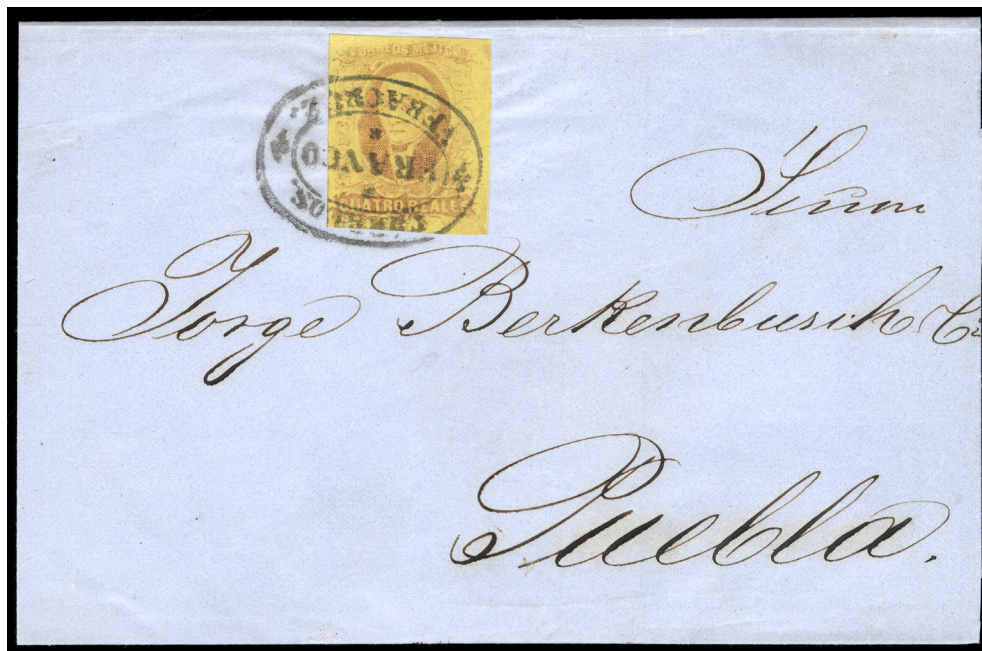 CORREOS MEJICO
CUATRO REALES
CORREOS.
FRANCO
VERACRUZ.
Señor
Jorge Berkenbusch Cia
Puebla.